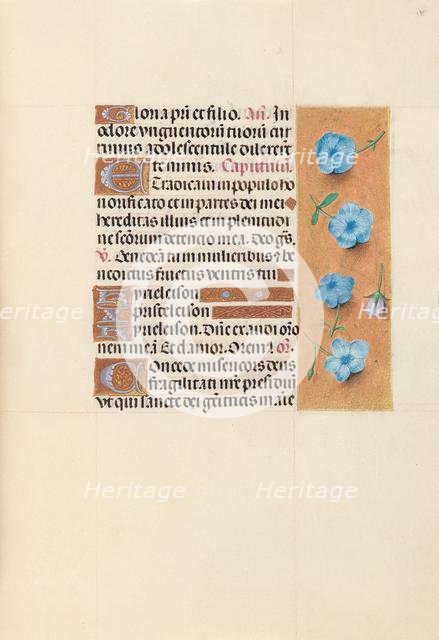 Gloria pri et filio. An. In
odore vnguentorum tuorum cur
rimus adolescentule dilexert
te nimis. Capitulum
Et radicaui in populo ho
norificato et in partes dei mei
hereditas illius et in plenitudi
ne sctorum detencio mea. Deo gr̃s.
V. Benedicta tu in mulieribus & be
nedictus fructus ventris tui
Kyrieleison
Christeleison
Kyrieleison. Dñe exaudi orõ
nem meã Et clamor. Oremꝰ. or.
Concede misericors deus
fragilitati nr̃e presidiũ
vt qui sancte dei genitricis marie
Heritage
Heritage
Heritage
Heritage
Heritage
Heritage